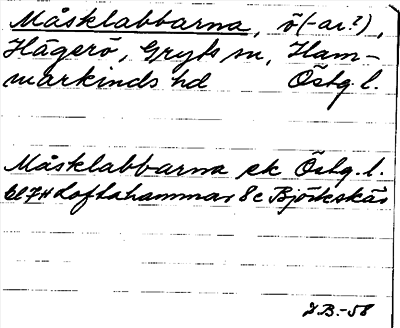 Måsklabbarna, ö(-ar?),
Hägerö, Gryts sn, Ham-
markinds hd Östg.l.
Måsklabbarna ek Östg.l.
bl 7H Loftahammar 8c Björkskär
J.B.-58